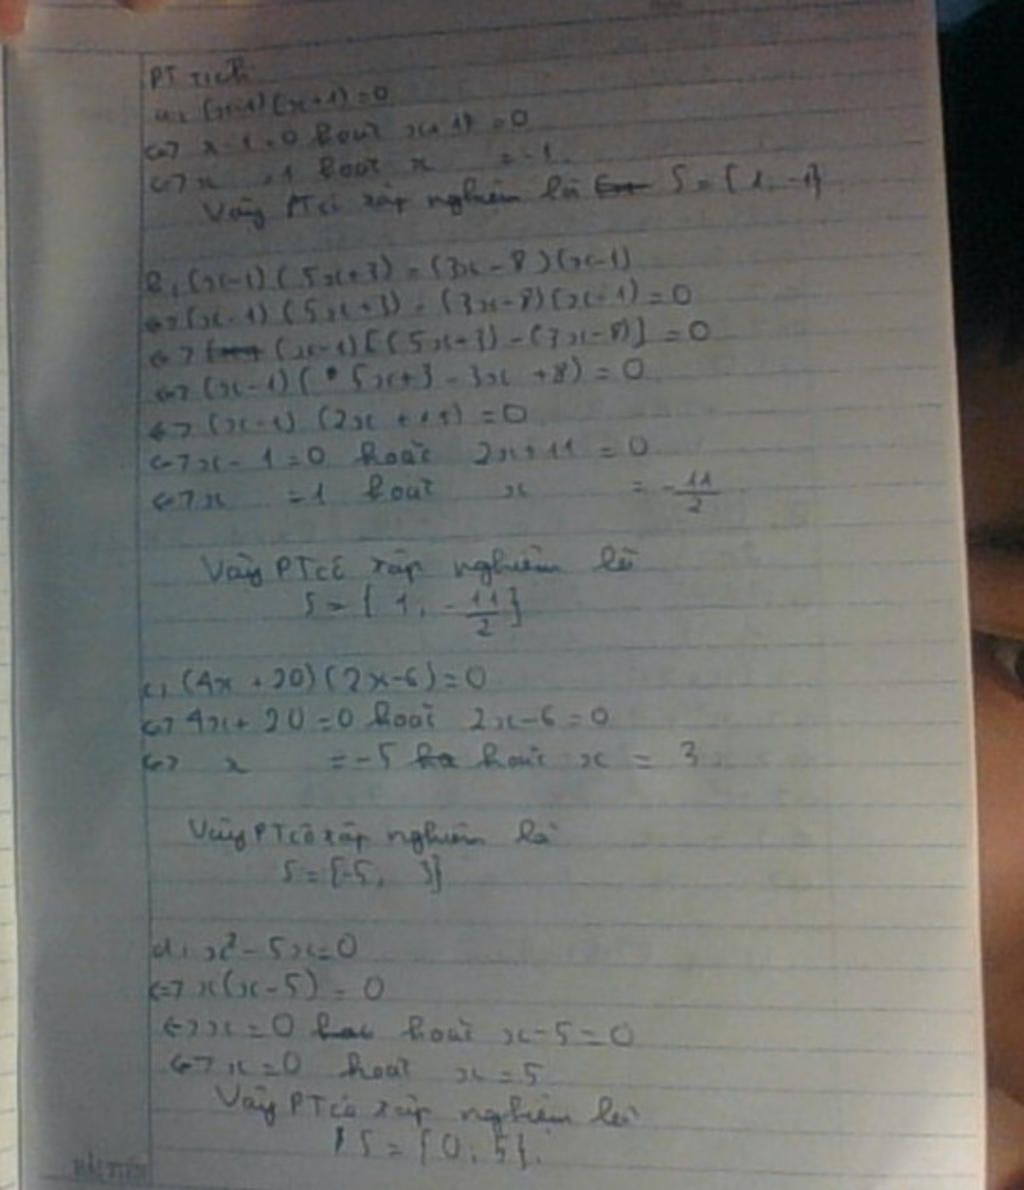 PT Tích
a, (x-1)(x+1)=0
<=> x-1=0 hoặc x+1=0
<=> x =1 hoặc x =-1
Vậy PT có tập nghiệm là S={1,-1}
B, (x-1)(5x+3)=(3x-8)(x-1)
<=> (x-1)(5x+3)-(3x-8)(x-1)=0
<=> (x-1)[(5x+3)-(3x-8)]=0
<=> (x-1)(5x+3-3x+8)=0
<=> (x-1)(2x+11)=0
<=> x-1=0 hoặc 2x+11=0
<=> x =1 hoặc x =-11/2
Vậy PT có tập nghiệm là
S={1,-11/2}
c, (4x+20)(2x-6)=0
<=> 4x+20=0 hoặc 2x-6=0
<=> x =-5 hoặc x = 3
Vậy PT có tập nghiệm là
S={-5, 3}
d, x²-5x=0
<=> x(x-5)=0
<=> x=0 hoặc x-5=0
<=> x=0 hoặc x=5
Vậy PT có tập nghiệm là
S={0,5}.